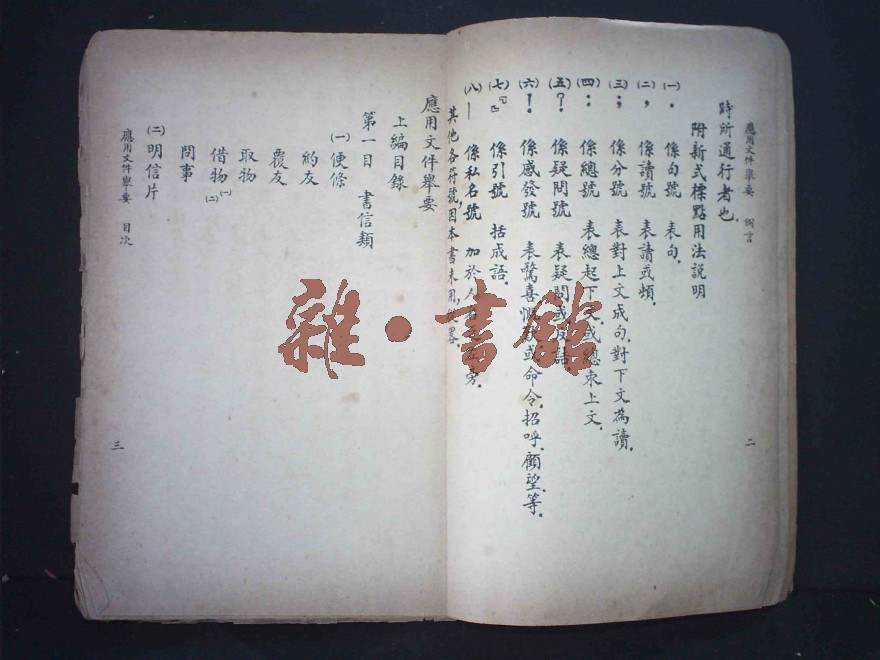 應用文件舉要 例言
二
時所通行者也.
附新式標點用法説明
(一) . 係句號 表句.
(二) , 係讀號 表讀或頓.
(三) ; 係分號 表對上文成句.對下文為讀.
(四) : 係總號 表總起下文.或總束上文.
(五) ? 係疑問號 表疑問或反詰.
(六) ! 係感發號 表驚喜慨歎或命令.招呼.願望.等.
(七) 『』 係引號 括成語.
(八) | 係私名號 加於人 左旁.
其他各符號,因本書未用,從畧.
應用文件舉要
上編目錄
第一目 書信類
(一) 便條
約友
覆友
取物
借物 (一) (二)
問事
(二) 明信片
應用文件舉要 目次
三
雜·書館